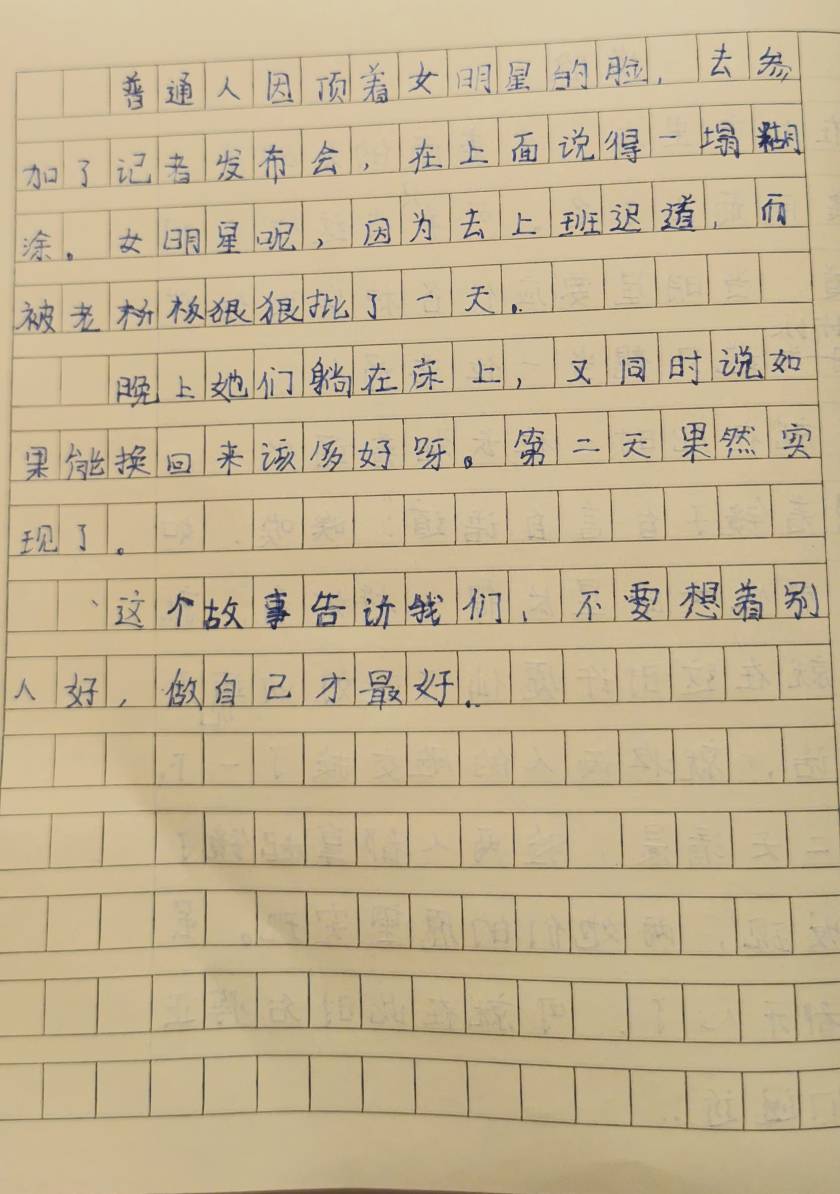 普通人因顶着女明星的脸，去参
加了记者发布会，在上面说得一塌糊
涂。女明星呢，因为去上班迟道，而
被老板狠狠批了一天。
晚上她们躺在床上，又同时说如
果能换回来该多好呀。第二天果然实
现了。
、这个故事告访我们，不要想着别
人好，做自己才最好。